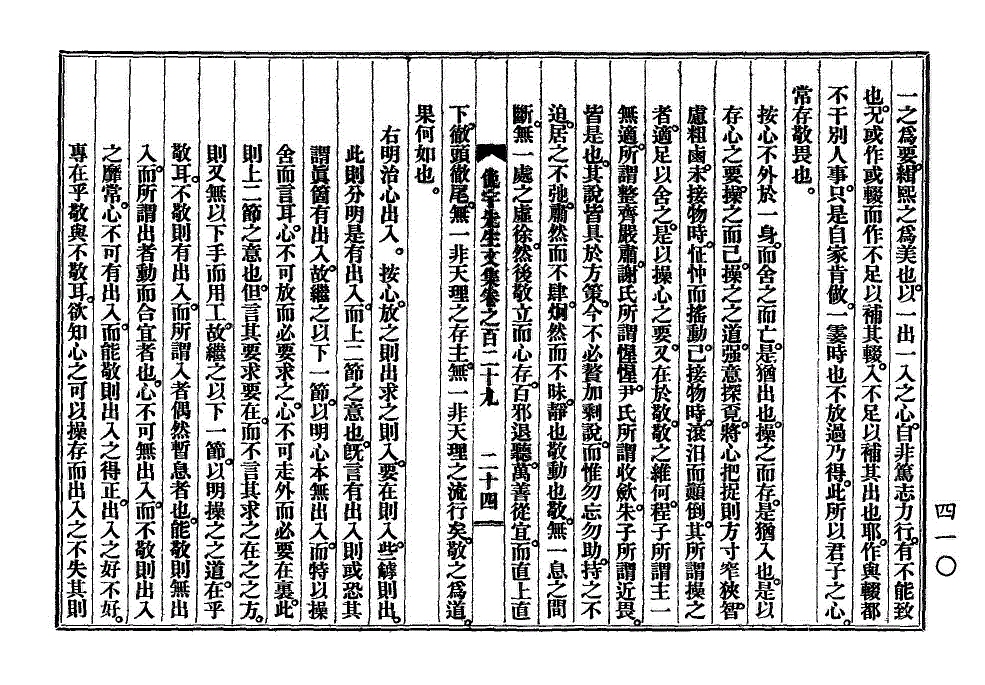 一之爲要。緝熙之爲美也。以一出一入之心。自非篤志力行。有不能致
也。況或作或輟而作不足以補其輟。入不足以補其出也耶。作與輟都
不干別人事。只是自家肯做。一霎時也不放過乃得。此所以君子之心。
常存敬畏也。
按心不外於一身。而舍之而亡。是猶出也。操之而存。是猶入也。是以
存心之要。操之而已。操之之道。强意探覓。將心把捉則方寸窄狹。智
慮粗鹵。未接物時。怔忡而搖動。已接物時。滾汨而顚倒。其所謂操之
者。適足以舍之。是以操心之要。又在於敬。敬之維何。程子所謂主一
無適。所謂整齊嚴肅。謝氏所謂惺惺。尹氏所謂收斂。朱子所謂近畏。
皆是也。其說皆具於方策。今不必贅加剩說。而惟勿忘勿助。持之不
迫。居之不弛。肅然而不肆。炯然而不昧。靜也敬動也敬。無一息之間
斷。無一處之虛徐。然後敬立而心存。百邪退聽。萬善從宜。而直上直
俛宇先生文集卷之百二十九 二十四
下。徹頭徹尾。無一非天理之存主。無一非天理之流行矣。敬之爲道。
果何如也。
右明治心出入。按心。放之則出求之則入。要在則入。些罅則出。
此則分明是有出入。而上二節之意也。旣言有出入則或恐其
謂眞箇有出入。故繼之以下一節。以明心本無出入。而特以操
舍而言耳。心不可放而必要求之。心不可走外而必要在裏。此
則上二節之意也。但言其要求要在。而不言其求之在之之方。
則又無以下手而用工。故繼之以下一節。以明操之之道。在乎
敬耳。不敬則有出入。而所謂入者偶然暫息者也。能敬則無出
入。而所謂出者動而合宜者也。心不可無出入。而不敬則出入
之靡常。心不可有出入。而能敬則出入之得正。出入之好不好。
專在乎敬與不敬耳。欲知心之可以操存而出入之不失其則
四一〇